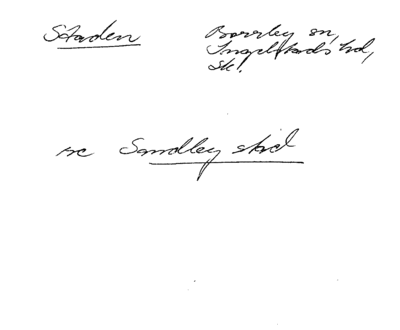 Staden
Borrby sn,
Ingelstads hd,
Sk.
se Sandby